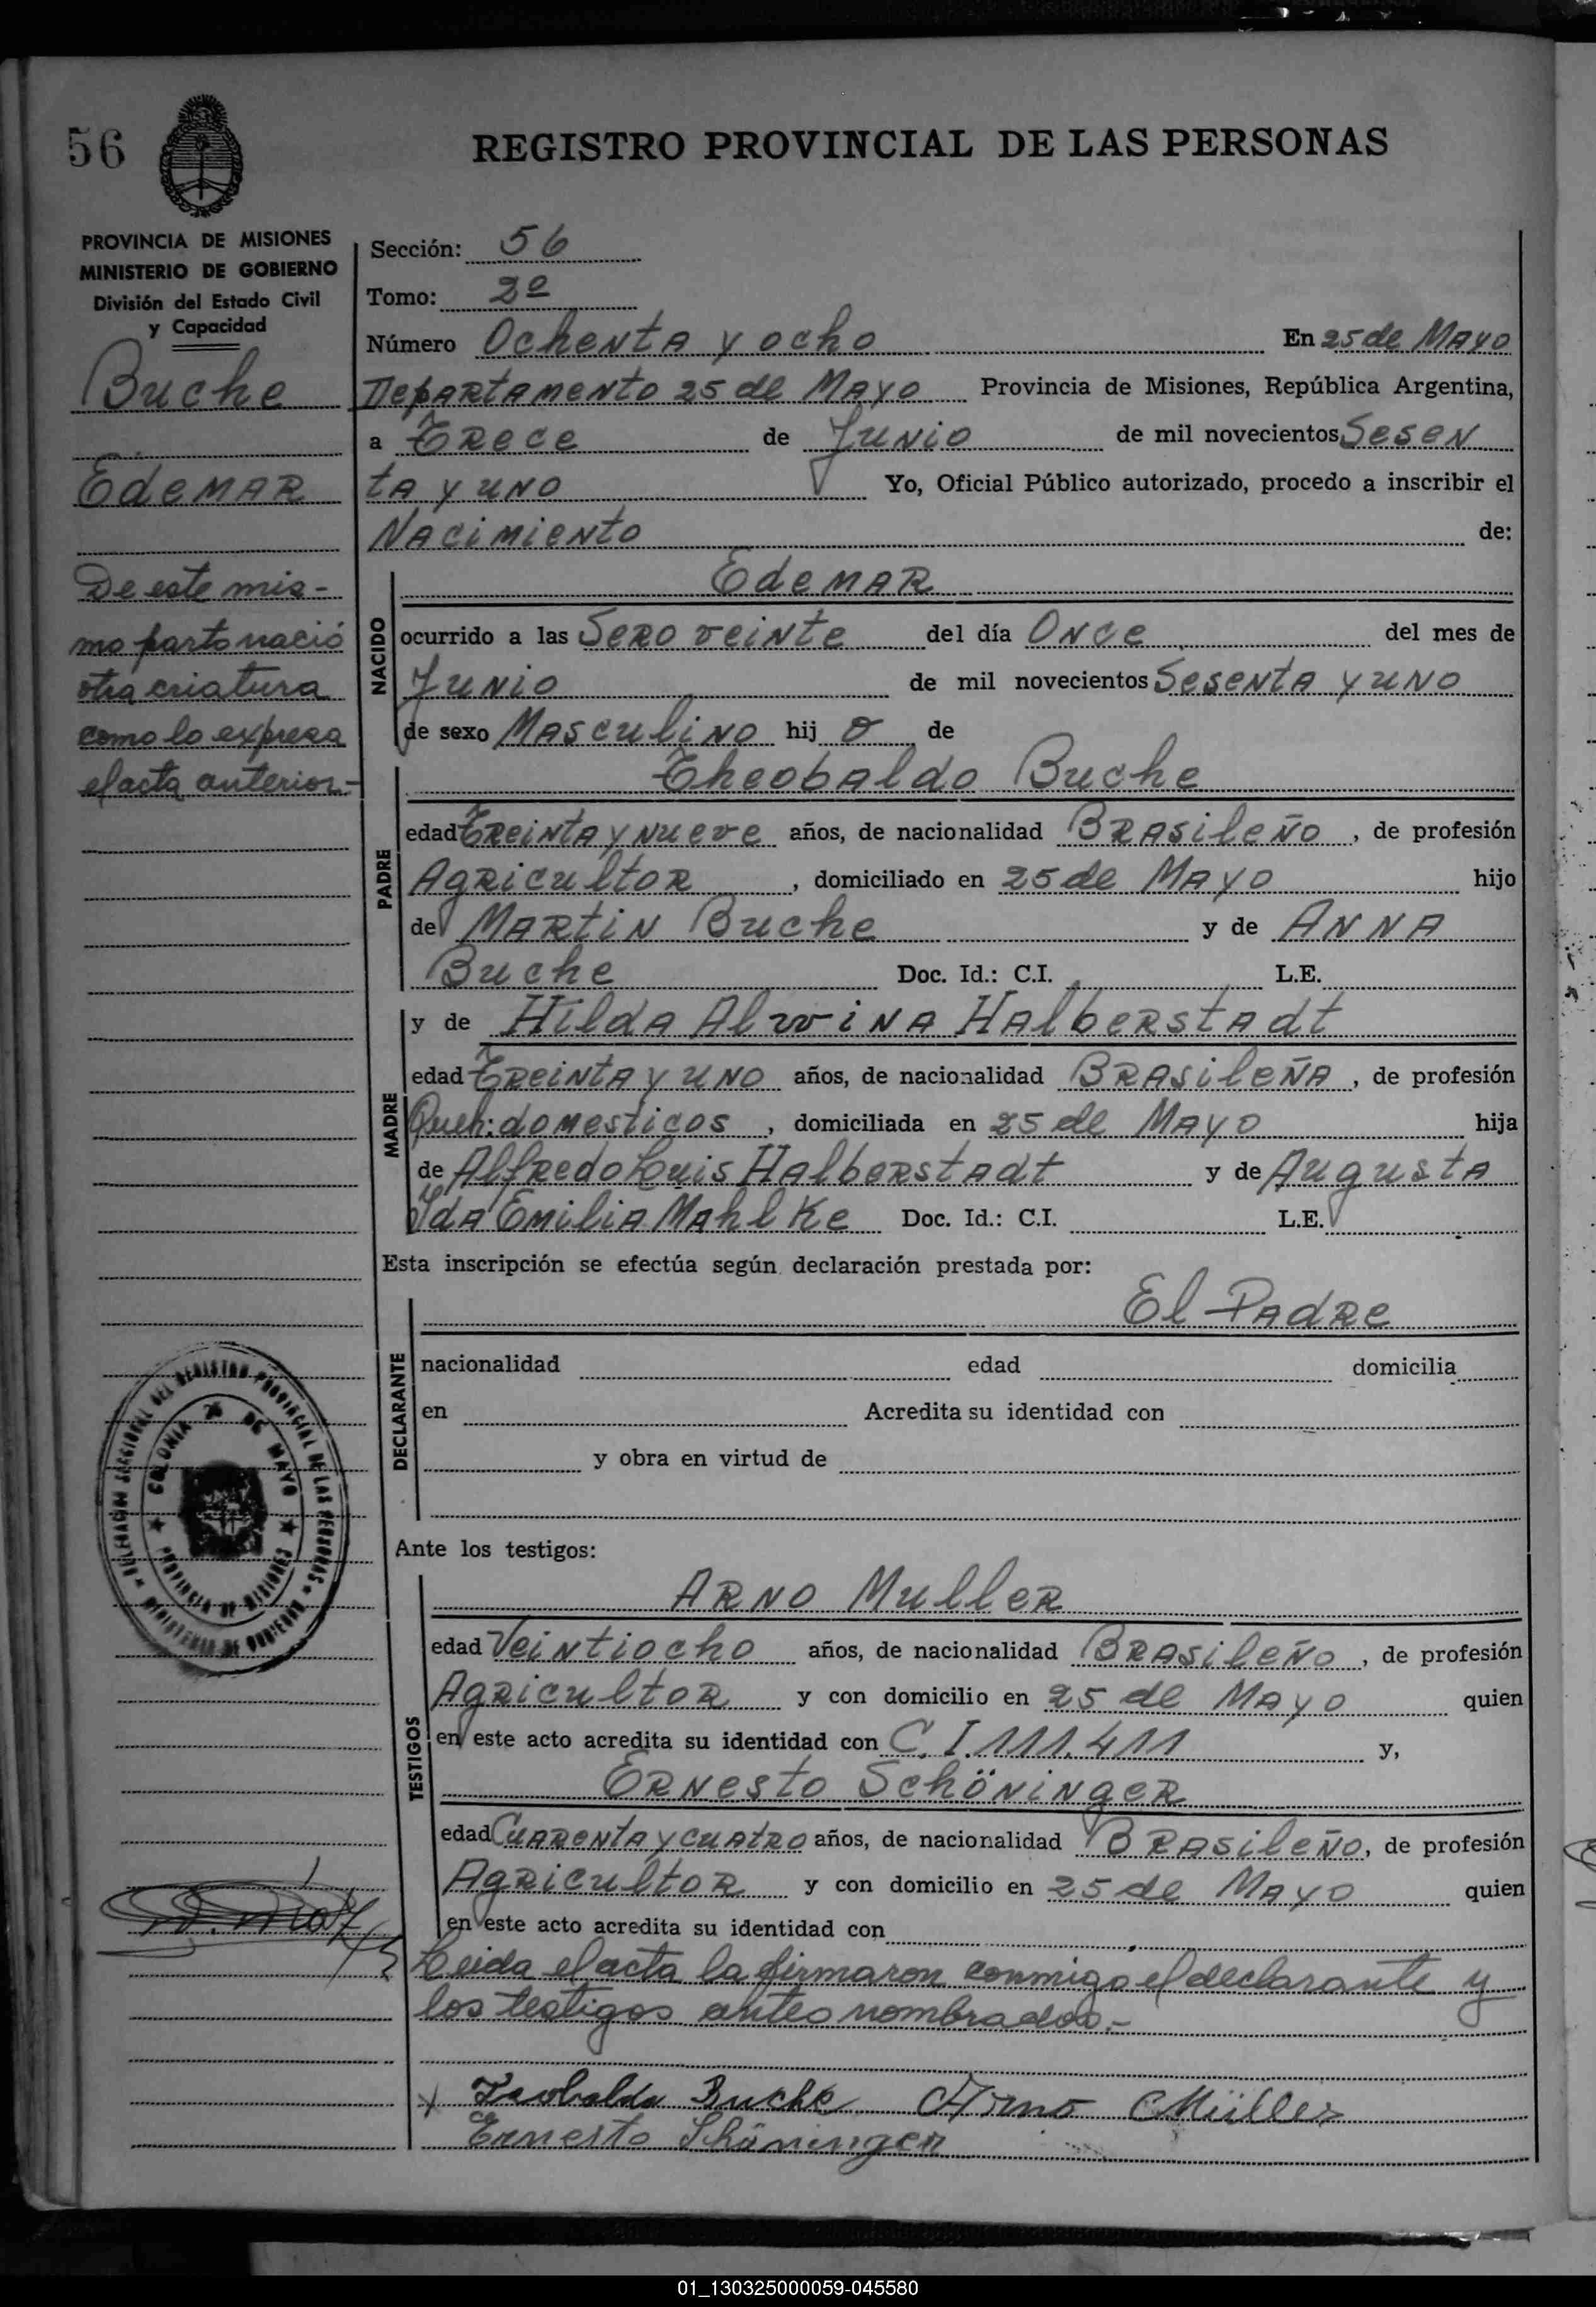 56
REGISTRO PROVINCIAL DE LAS PERSONAS
PROVINCIA DE MISIONES
MINISTERIO DE GOBIERNO
División del Estado Civil
y Capacidad
Buche
Edemar
De este mis-
mo parto nació
otra criatura
como lo expresa
el acta anterior.-
Sección: 56
Tomo: 2º
Número Ochenta y ocho En 25 de Mayo
Departamento 25 de Mayo Provincia de Misiones, República Argentina,
a Trece de Junio de mil novecientos Sesen
ta y uno Yo, Oficial Público autorizado, procedo a inscribir el
Nacimiento de:
NACIDO
Edemar
ocurrido a las Sero veinte del día Once del mes de
Junio de mil novecientos Sesenta y uno
de sexo Masculino hij o de
PADRE
Theobaldo Buche
edad Treinta y nueve años, de nacionalidad Brasileño, de profesión
Agricultor, domiciliado en 25 de Mayo hijo
de Martin Buche y de Anna
Buche Doc. Id.: C.I. L.E.
MADRE
y de Hilda Alwina Halberstadt
edad Treinta y uno años, de nacionalidad Brasileña, de profesión
Queh: domesticos, domiciliada en 25 de Mayo hija
de Alfredo Luis Halberstadt y de Augusta
Ida Emilia Mahlke Doc. Id.: C.I. L.E.
Esta inscripción se efectúa según declaración prestada por:
DECLARANTE
El Padre
nacionalidad edad domicilia
en Acredita su identidad con
y obra en virtud de
DELEGACION SECCIONAL DEL REGISTRO PROVINCIAL DE LAS PERSONAS
COLONIA 25 DE MAYO
PROVINCIA DE MISIONES
MINISTERIO DE GOBIERNO
Ante los testigos:
TESTIGOS
Arno Muller
edad Veintiocho años, de nacionalidad Brasileño, de profesión
Agricultor y con domicilio en 25 de Mayo quien
en este acto acredita su identidad con C.I. 111.411 y,
Ernesto Schöninger
edad Cuarenta y cuatro años, de nacionalidad Brasileño, de profesión
Agricultor y con domicilio en 25 de Mayo quien
en este acto acredita su identidad con
Leida el acta la firmaron conmigo el declarante y
los testigos antes nombrados.-
x Teobaldo Buche Arno Müller
Ernesto Schöninger
01_130325000059-045580